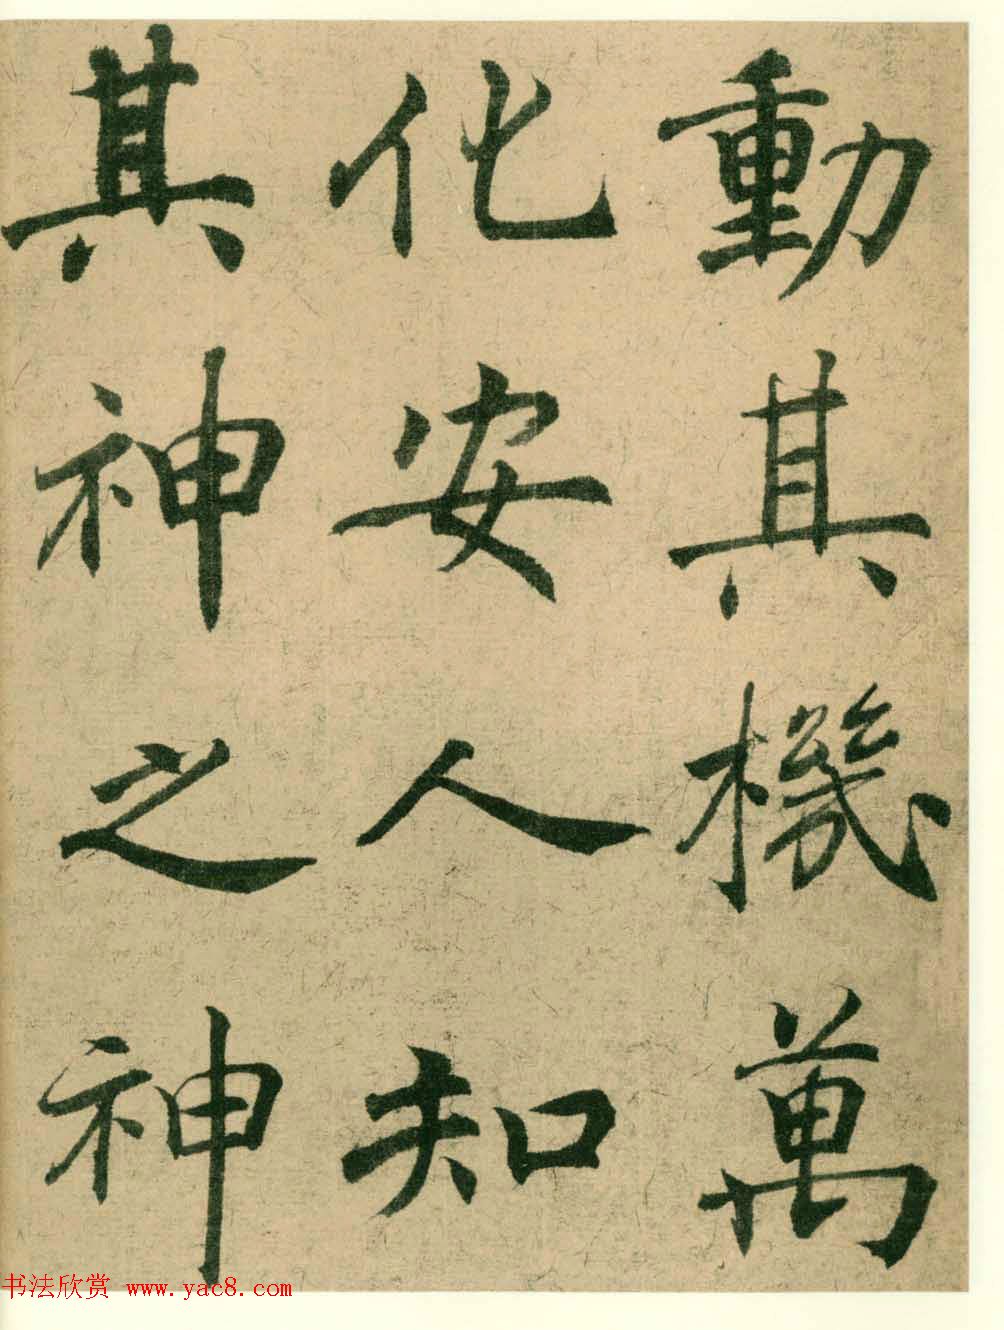 動其機萬
化安人知
其神之神
书法欣赏 www.yac8.com